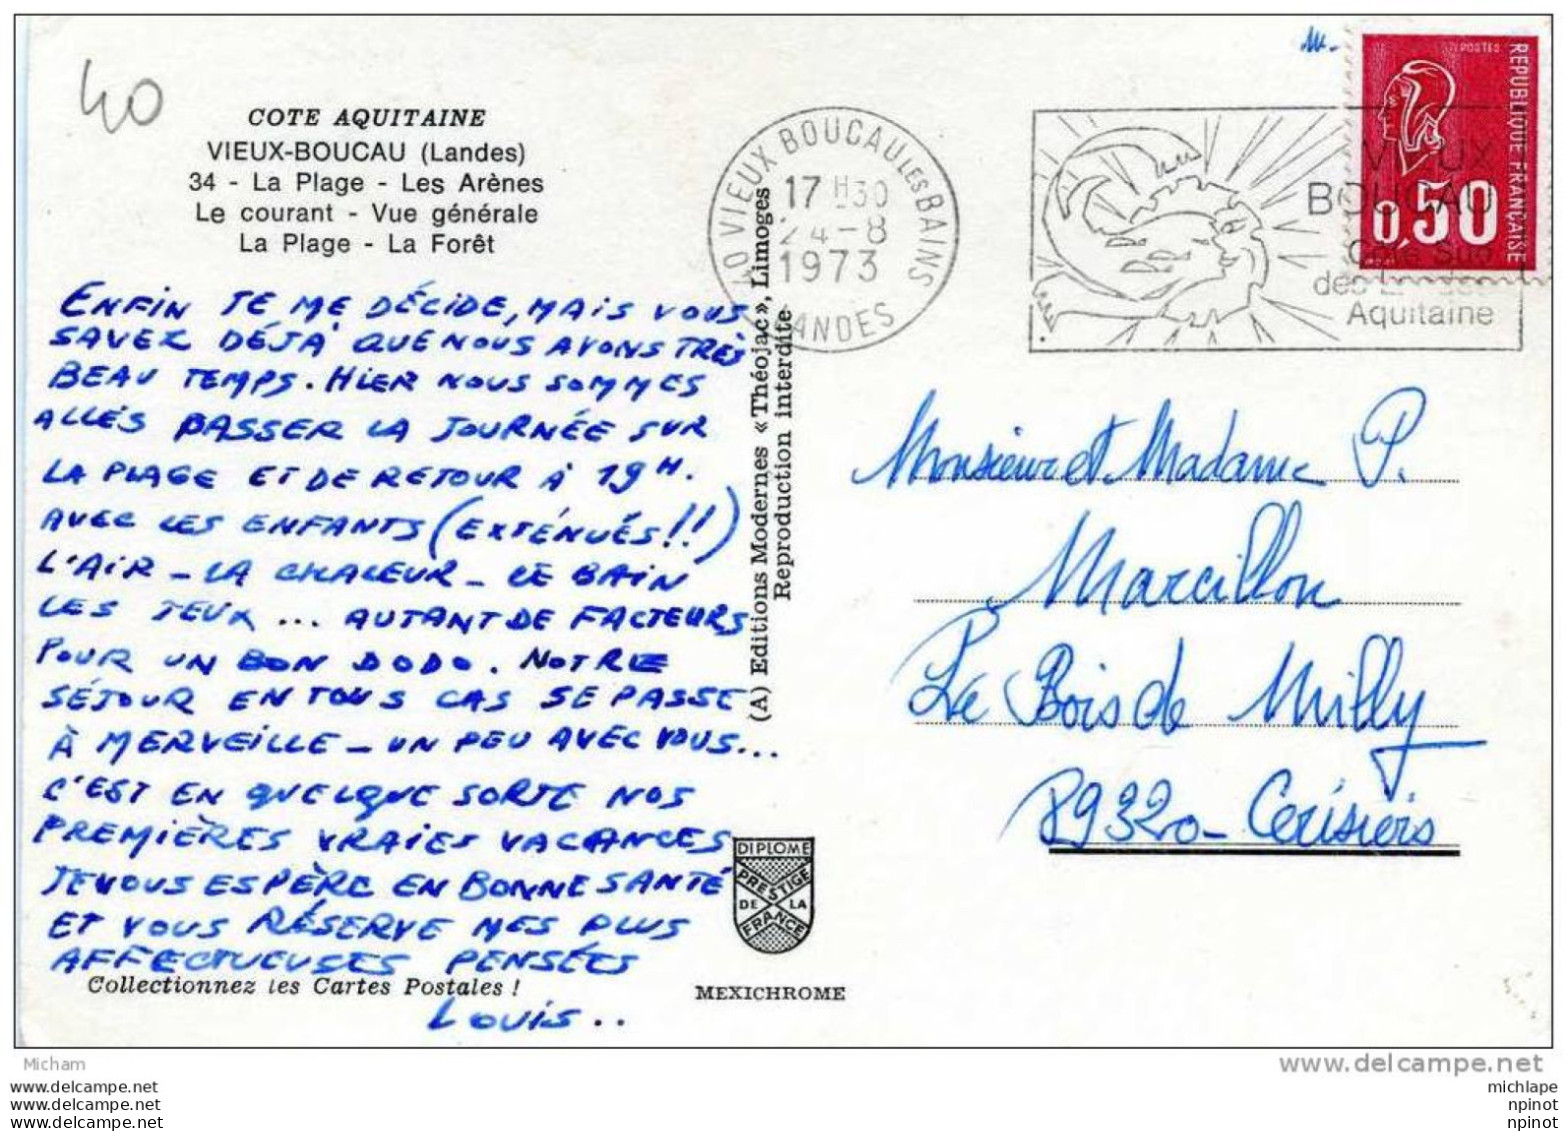 40
COTE AQUITAINE
VIEUX-BOUCAU (Landes)
34 - La Plage - Les Arènes
Le courant - Vue générale
La Plage - La Forêt
ENFIN JE ME DÉCIDE, MAIS VOUS
SAVEZ DÉJÀ QUE NOUS AVONS TRÈS
BEAU TEMPS. HIER NOUS SOMMES
ALLÉS PASSER LA JOURNÉE SUR
LA PLAGE ET DE RETOUR À 19H.
AVEC LES ENFANTS (EXTÉNUÉS!!)
L'AIR - LA CHALEUR - LE BAIN
LES JEUX ... AUTANT DE FACTEURS
POUR UN BON DODO. NOTRE
SÉJOUR EN TOUS CAS SE PASSE
À MERVEILLE - UN PEU AVEC VOUS...
C'EST EN QUELQUE SORTE NOS
PREMIÈRES VRAIES VACANCES
JE VOUS ESPÈRE EN BONNE SANTÉ
ET VOUS RÉSERVE MES PLUS
AFFECTUEUSES PENSÉES
Louis..
Collectionnez les Cartes Postales !
(A) Editions Modernes «Théojac», Limoges
Reproduction interdite
DIPLOME
PRESTIGE
DE LA
FRANCE
MEXICHROME
40 VIEUX BOUCAU LES BAINS
17 H30
24-8
1973
LANDES
VIEUX
BOUCAU
Côte Sud
Aquitaine
POSTES
REPUBLIQUE FRANÇAISE
0,50
Monsieur et Madame P.
Marcillon
Le Bois de Milly
89320 - Cerisiers
Micham
www.delcampe.net
www.delcampe.net
www.delcampe.net
www.delcampe.net
michlape
npinot
npinot